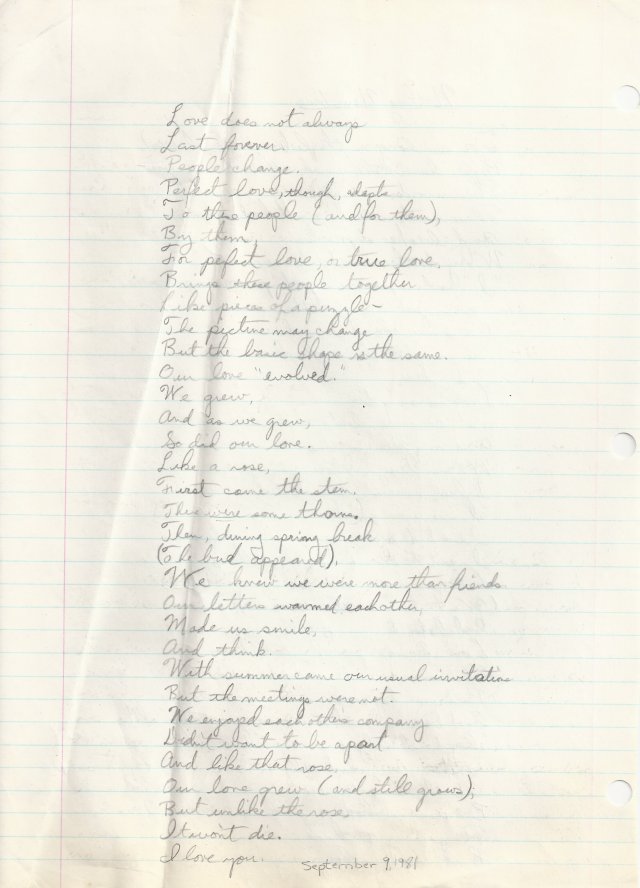 Love does not always
Last forever.
People change.
Perfect love, though, adapts
To these people (and for them),
By them,
For perfect love, or true love,
Brings these people together
Like pieces of a puzzle –
The picture may change
But the basic shape is the same.
Our love "evolved."
We grew,
And as we grew,
So did our love.
Like a rose,
First came the stem.
There were some thorns.
Then, during spring break
(The bud appeared),
We knew we were more than friends
Our letters warmed eachother,
Made us smile,
And think.
With summer came our usual invitations
But the meetings were not.
We enjoyed each others company
Didn't want to be apart
And like that rose,
Our love grew (and still grows);
But unlike the rose,
It won't die.
I love you.
September 9, 1981